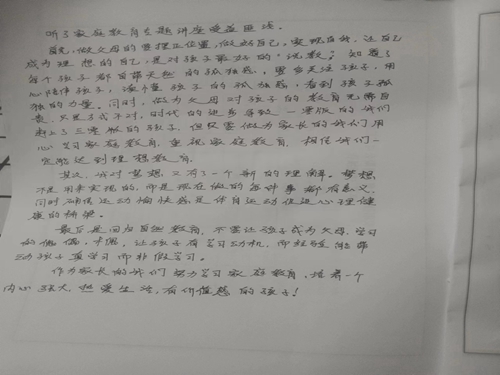 听了家庭教育专题讲座受益匪浅。
首先,做父母的要摆正位置,做好自己,实现自我,让自己
成为理想的自己,是对孩子最好的"说教";知道了
每个孩子都自带天然的孤独感,要多关注孩子,用
心陪伴孩子,读懂孩子的孤独感,看到孩子孤
独的力量。同时,做为父母对孩子的教育无需自
责,只是了或不对,时代的进步导致一等版的我们
赶上了三等版的孩子,但只要做为家长的我们用
心学习家庭教育,重视家庭教育,相信我们一
定能达到理想教育。
其次,我对梦想又有了一个新的理解。梦想
不是用来实现的,而是现在做的每件事都有意义,
同时确信运动愉快感是伴自运动促进心理健
康的桥梁。
最后是回归自然教育,不要让孩子成为父母、学习
的偶,让孩子有学习动机,而经验能带
动孩子真学习而非假学习。
作为家长的我们努力学习家庭教育,培养一个
内心强大、热爱生活、有价值感的孩子!